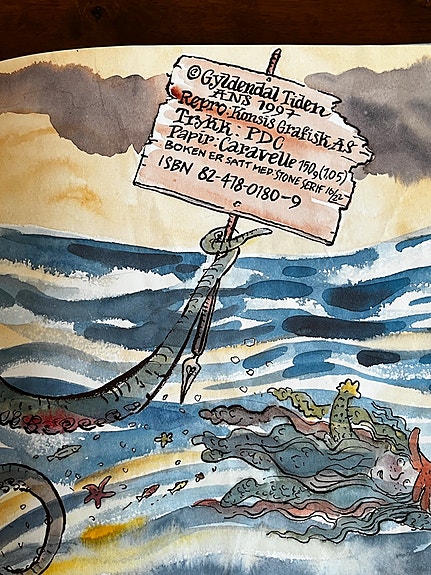 © Gyldendal Tiden
ANS 1997
Repro: Konsis Grafisk AS
Trykk: PDC
Papir: Caravelle 150g (1.05)
BOKEN ER SATT MED STONE SERIF 16/22
ISBN 82-478-0180-9